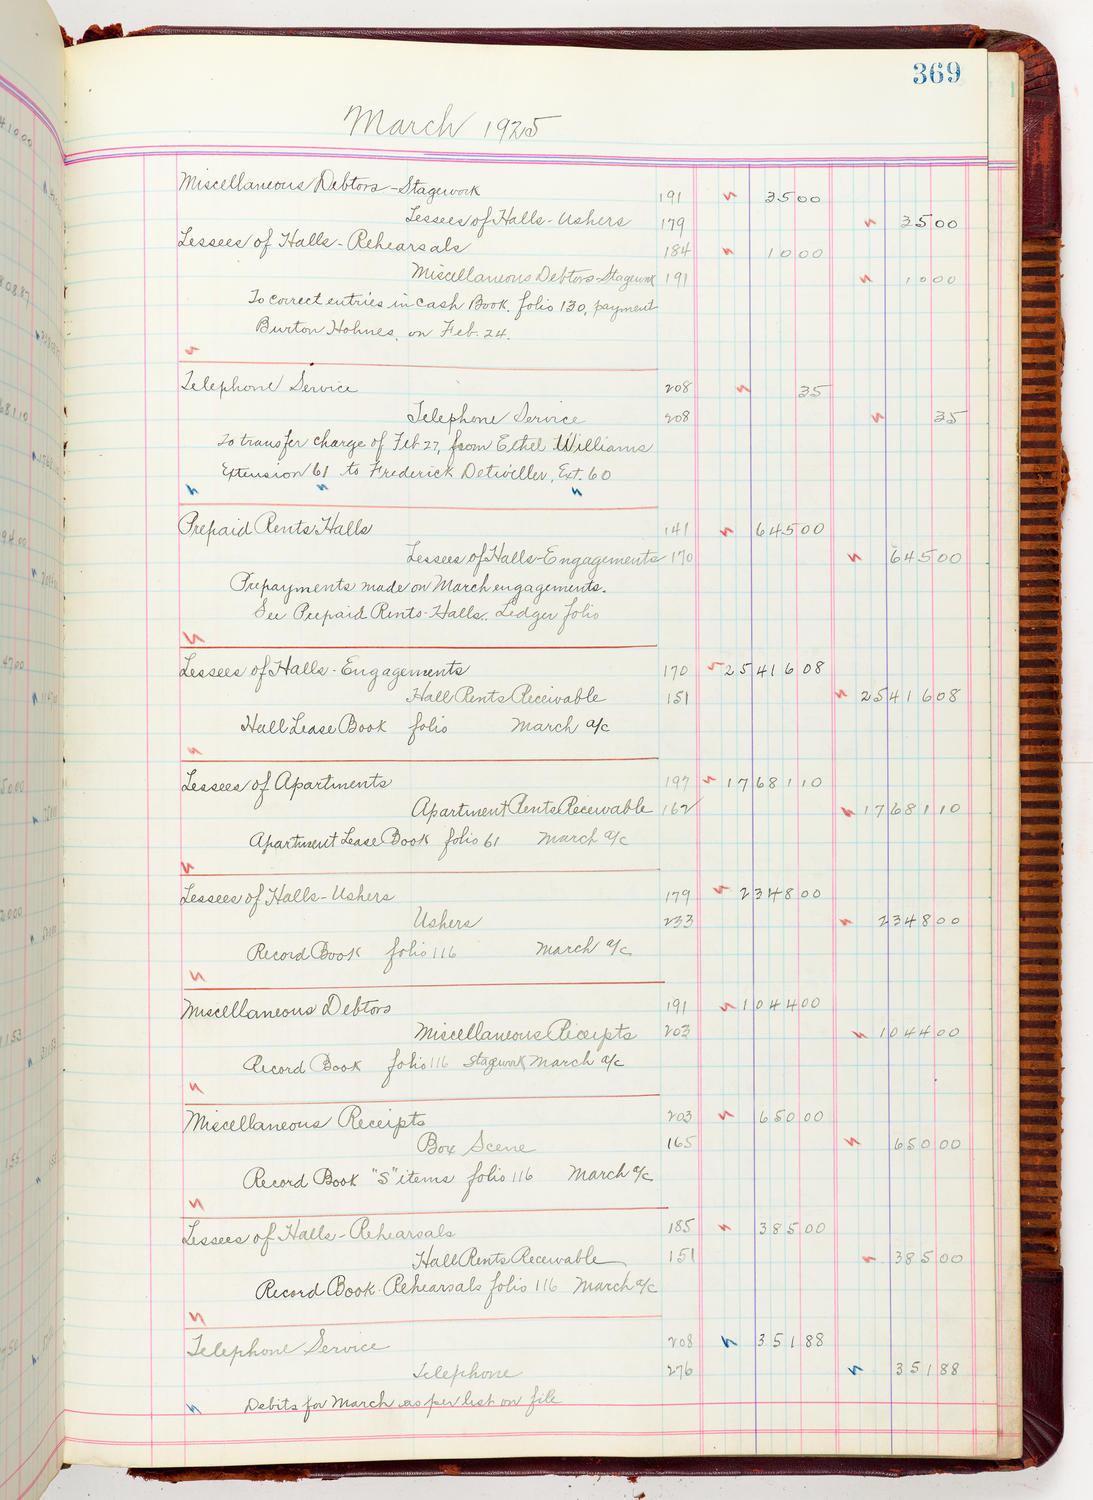 369
March 1925
Miscellaneous Debtors - Stagework 191 3500
Lessees of Halls - Ushers 179 3500
Lessees of Halls - Rehearsals 184 1000
Miscellaneous Debtors - Stagework 191 1000
To correct entries in Cash Book, folio 130, payment
Burton Holmes, on Feb. 24.
Telephone Service 208 35
Telephone Service 208 35
To transfer charge of Feb 27, from Ethel Williams
Extension 61 to Frederick Detwiller, Ext. 60
Prepaid Rents Halls 141 64500
Lessees of Halls - Engagements 170 64500
Prepayments made on March engagements.
See Prepaid Rents - Halls. Ledger folio
Lessees of Halls - Engagements 170 2541608
Hall Rents Receivable 151 2541608
Hall Lease Book folio March a/c
Lessees of Apartments 197 1768110
Apartment Rents Receivable 162 1768110
Apartment Lease Book folio 61 March a/c
Lessees of Halls - Ushers 179 234800
Ushers 233 234800
Record Book folio 116 March a/c
Miscellaneous Debtors 191 104400
Miscellaneous Receipts 203 104400
Record Book folio 116 Stagework March a/c
Miscellaneous Receipts 203 65000
Box Scene 165 65000
Record Book "S" items folio 116 March a/c
Lessees of Halls - Rehearsals 185 38500
Hall Rents Receivable 151 38500
Record Book - Rehearsals folio 116 March a/c
Telephone Service 208 35188
Telephone 276 35188
Debits for March as per list on file